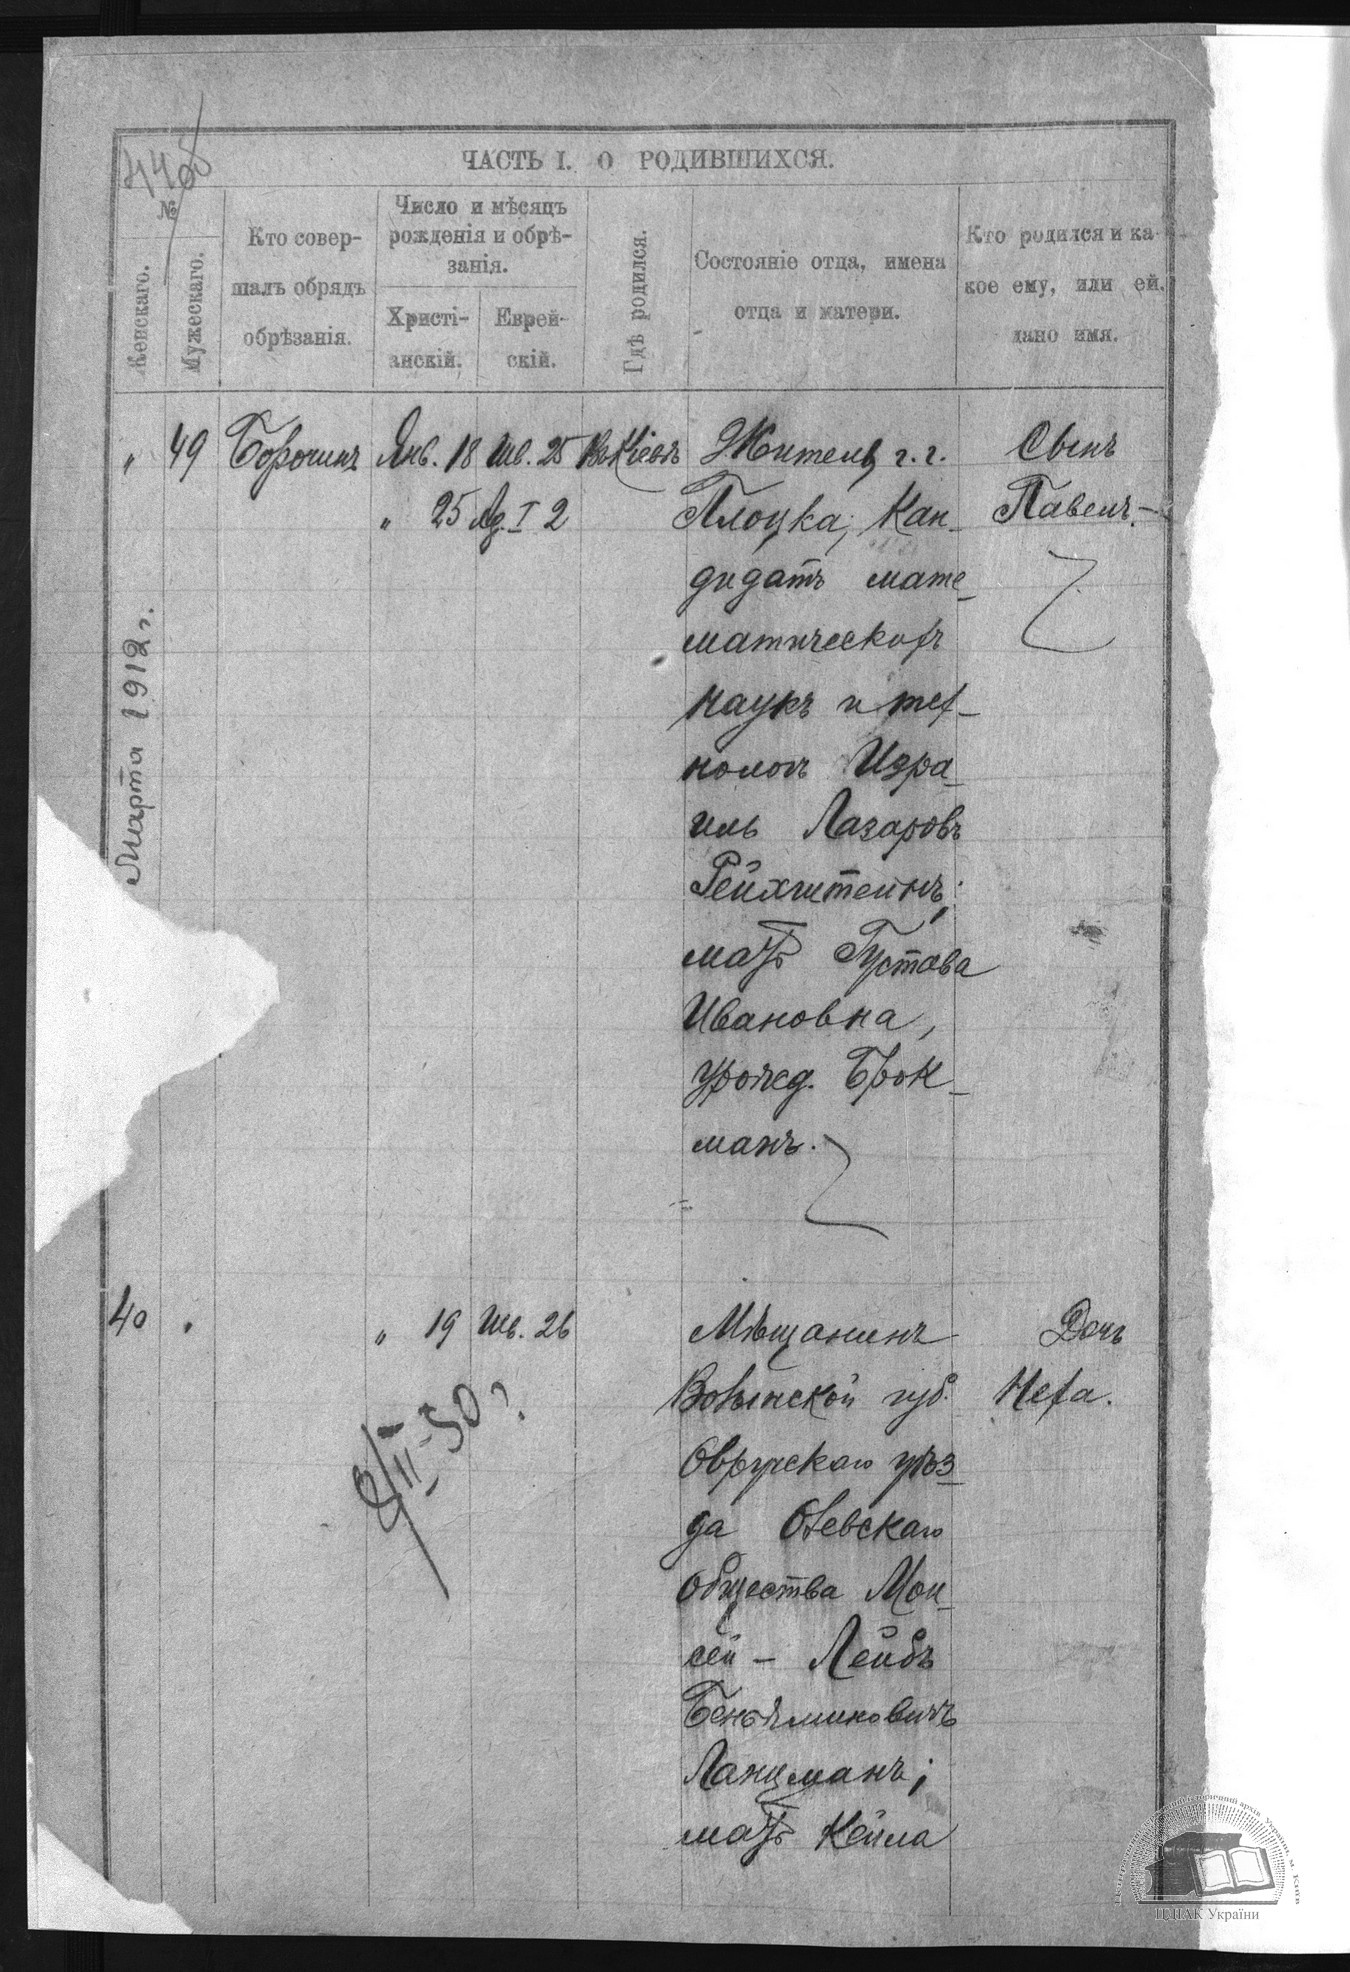 ЧАСТЬ I. О РОДИВШИХСЯ.
№
Женскаго.
Мужескаго.
Кто совер-
шалъ обрядъ
обрѣзанія.
Число и мѣсяцъ
рожденія и обрѣ-
занія.
Христі-
анскій.
Еврей-
скій.
Гдѣ родился.
Состояніе отца, имена
отца и матери.
Кто родился и ка-
кое ему, или ей,
дано имя.
„ 49 Борочинъ Янв. 18 Шв. 25 Въ Кіевѣ Житель г. г. Сынъ
„ 25 Ад. I 2 Плоцка, Кан- Павелъ.-
дидатъ мате-
матическихъ
наукъ и тех-
нологъ Изра-
иль Лазаровъ
Рейхштейнъ;
мать Густава
Ивановна,
урожд. Брок-
манъ.
Марта 1912 г.
40 „ „ 19 Шв. 26 Мѣщанинъ Дочь
Волынской губ. Неха.
Овручскаго уѣз-
да Олевскаго
общества Мои-
сей - Лейбъ
Беньяминовичъ
Ланцманъ;
мать Кейла
9/II-30 г.
ЦДІАК України